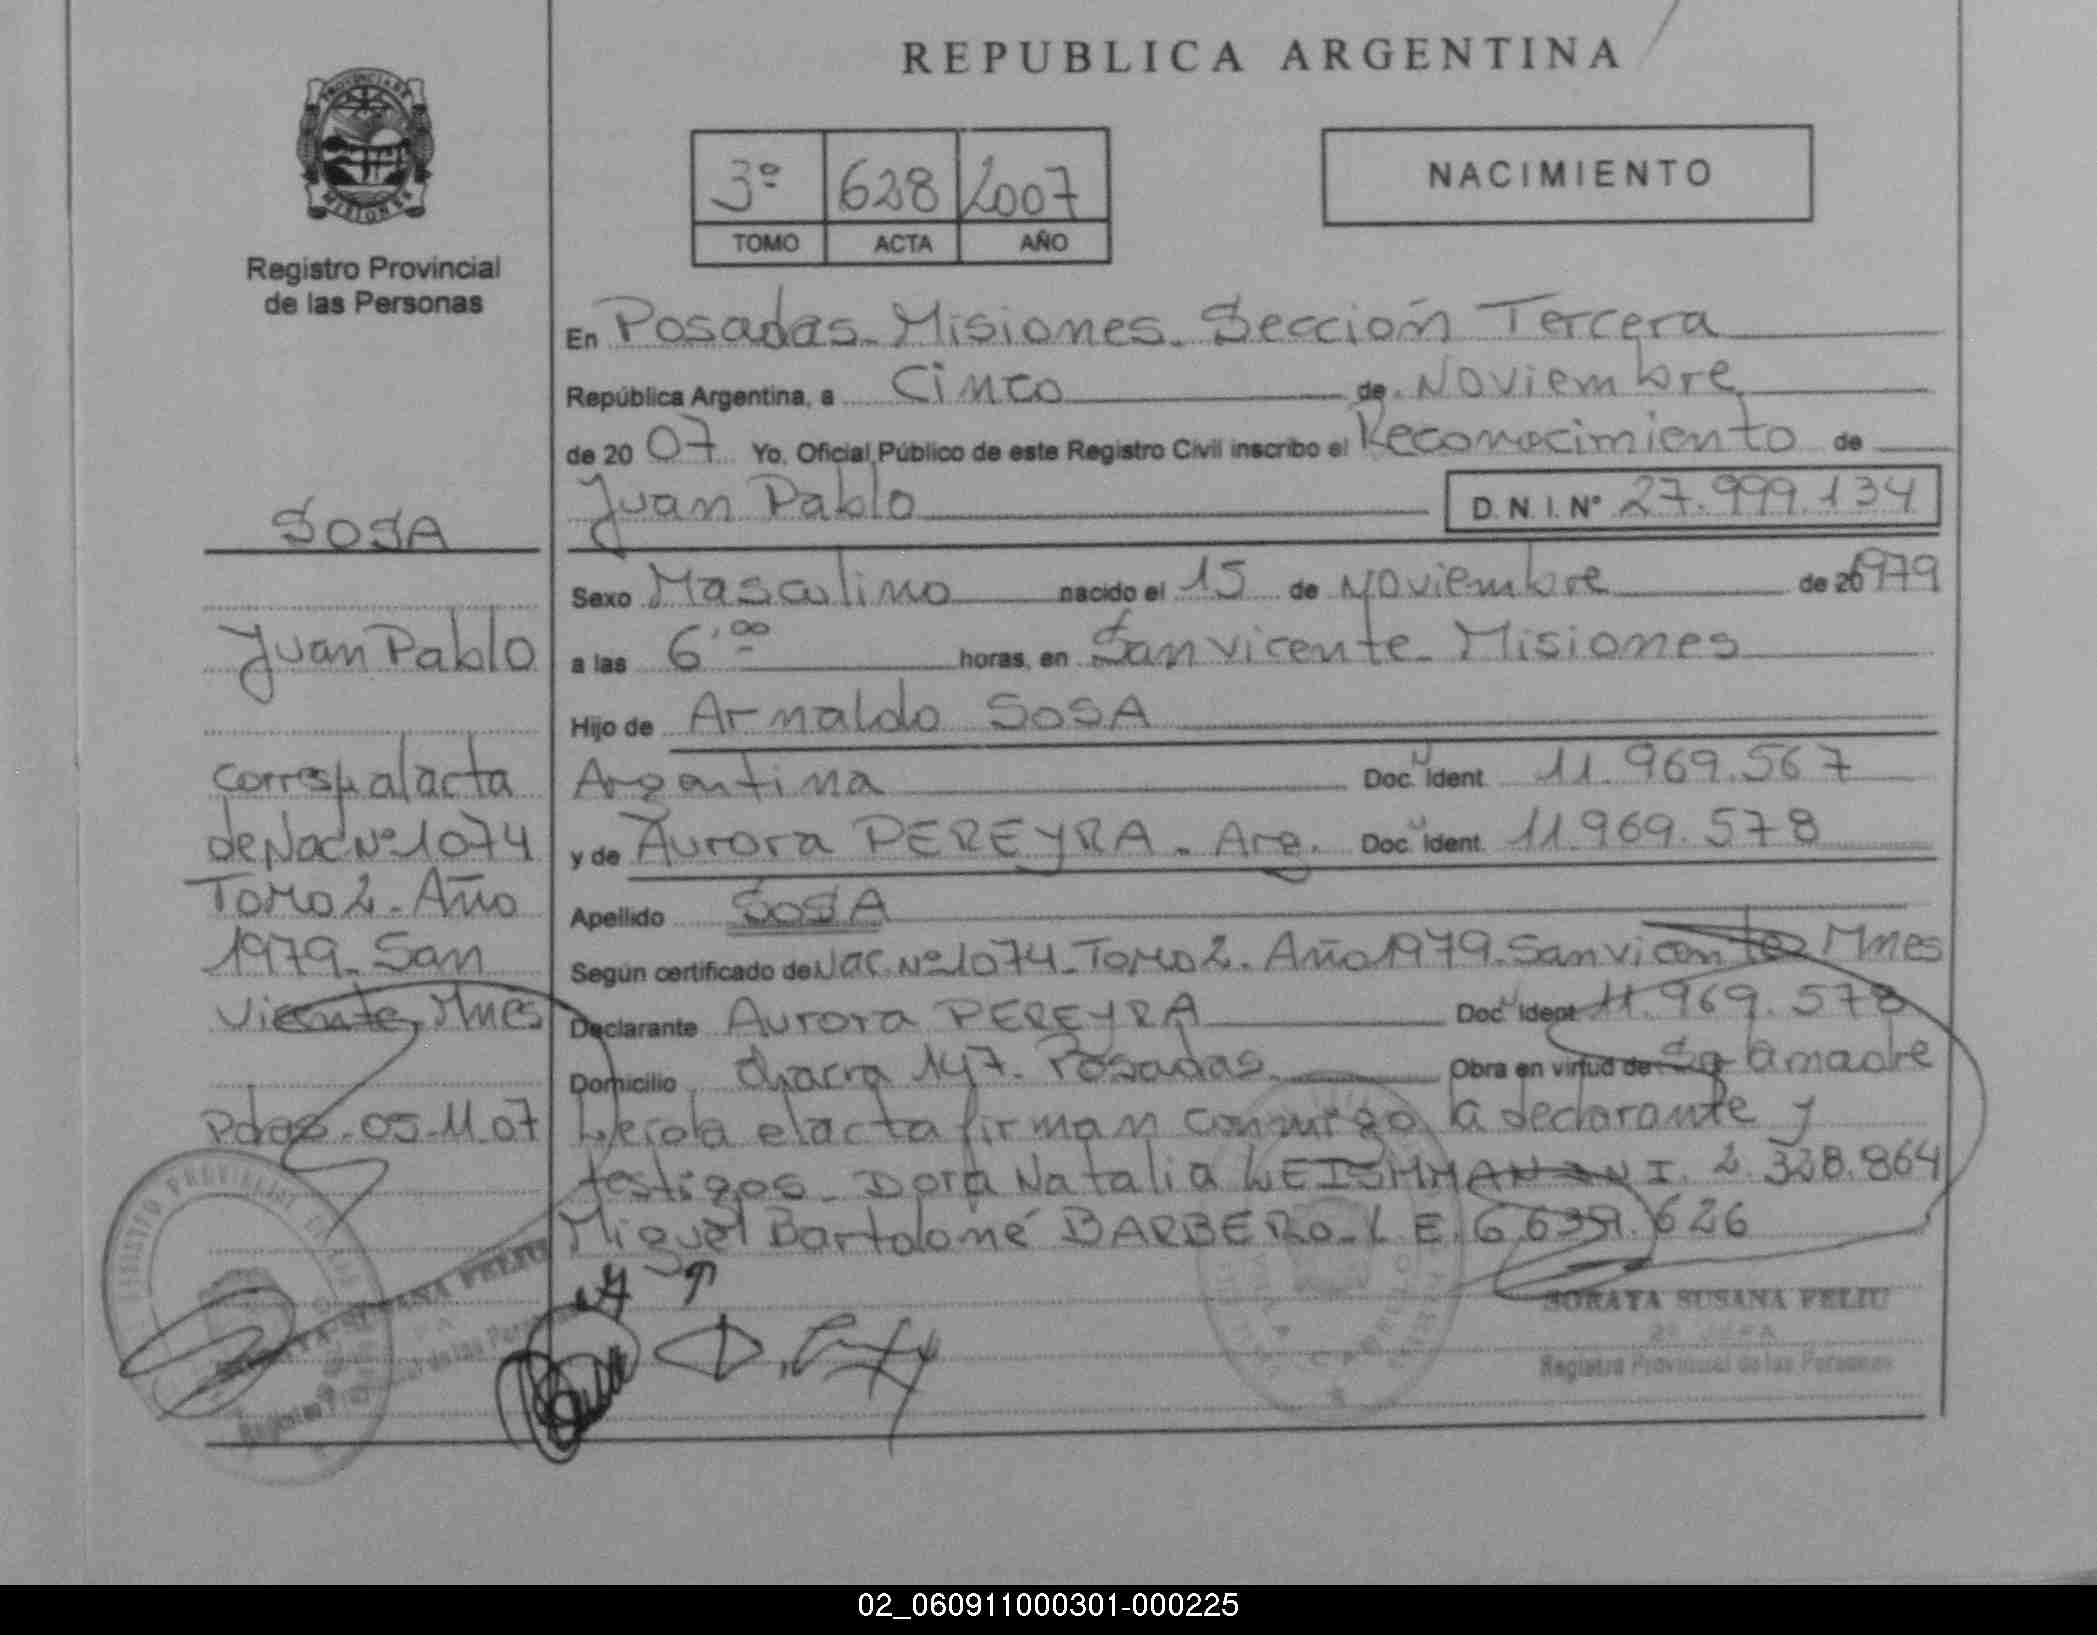 REPUBLICA ARGENTINA
PROVINCIA DE
MISIONES
Registro Provincial
de las Personas
3º 628 2007
TOMO ACTA AÑO
NACIMIENTO
En Posadas-Misiones. Sección Tercera
República Argentina, a Cinco de Noviembre
de 20 07 Yo, Oficial Público de este Registro Civil inscribo el Reconocimiento de
Juan Pablo D. N. I. Nº 27.999.134
Sexo Masculino nacido el 15 de Noviembre de 20 1979
a las 6,00 horas, en San Vicente-Misiones
Hijo de Arnaldo SOSA
Argentina Doc. Ident. 11.969.567
y de Aurora PEREYRA. Arg. Doc. Ident. 11.969.578
Apellido SOSA
Según certificado de Nac. Nº 1074-Tomo 2. Año 1979-San Vicente Mnes
Declarante Aurora PEREYRA Doc. Ident. 11.969.578
Domicilio chacra 147. Posadas Obra en virtud de la madre
Leída el acta firman conmigo la declarante y
testigos-Dora Natalia I. 2.328.864
Miguel Bartolomé BARBERO-L.E. 626
SOSA
Juan Pablo
corresp al acta
de Nac Nº 1074
Tomo 2-Año
1979-San
Vicente, Mnes
Pdas-05-11-07
SORAYA SUSANA FELIU
2º JEFA
Registro Provincial de las Personas
SUSANA FELIU
Registro Provincial de las Personas
02_060911000301-000225